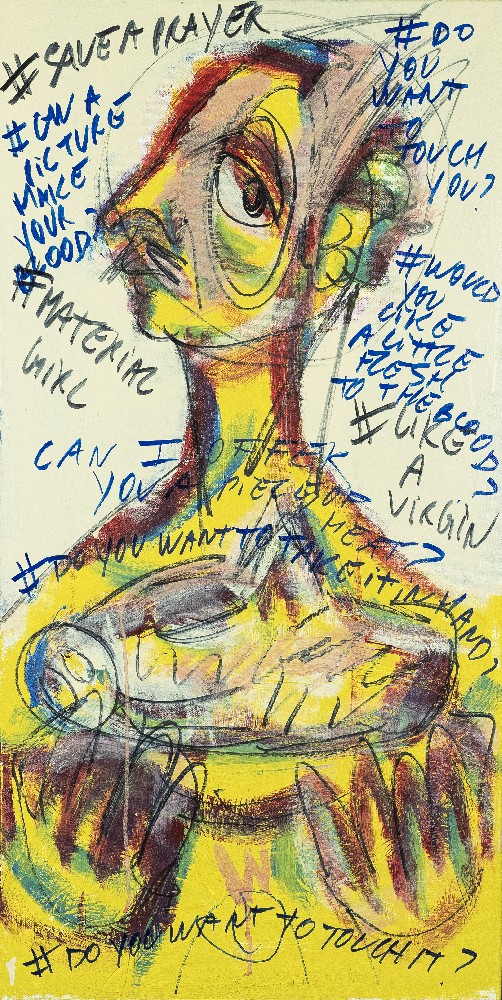 #SAVE A PRAYER
#DO
YOU
WANT
TO
TOUCH
YOU?
#CAN A
PICTURE
MAKE
YOUR
BLOOD?
#MATERIAL
GIRL
#WOULD
YOU
LIKE
A LITTLE
FLESH
TO THE BLOOD?
#LIKE
A
VIRGIN
CAN I OFFER
YOU A PIECE OF
MEAT?
#DO YOU WANT TO TAKE IT IN HAND?
#DO YOU WANT TO TOUCH IT?